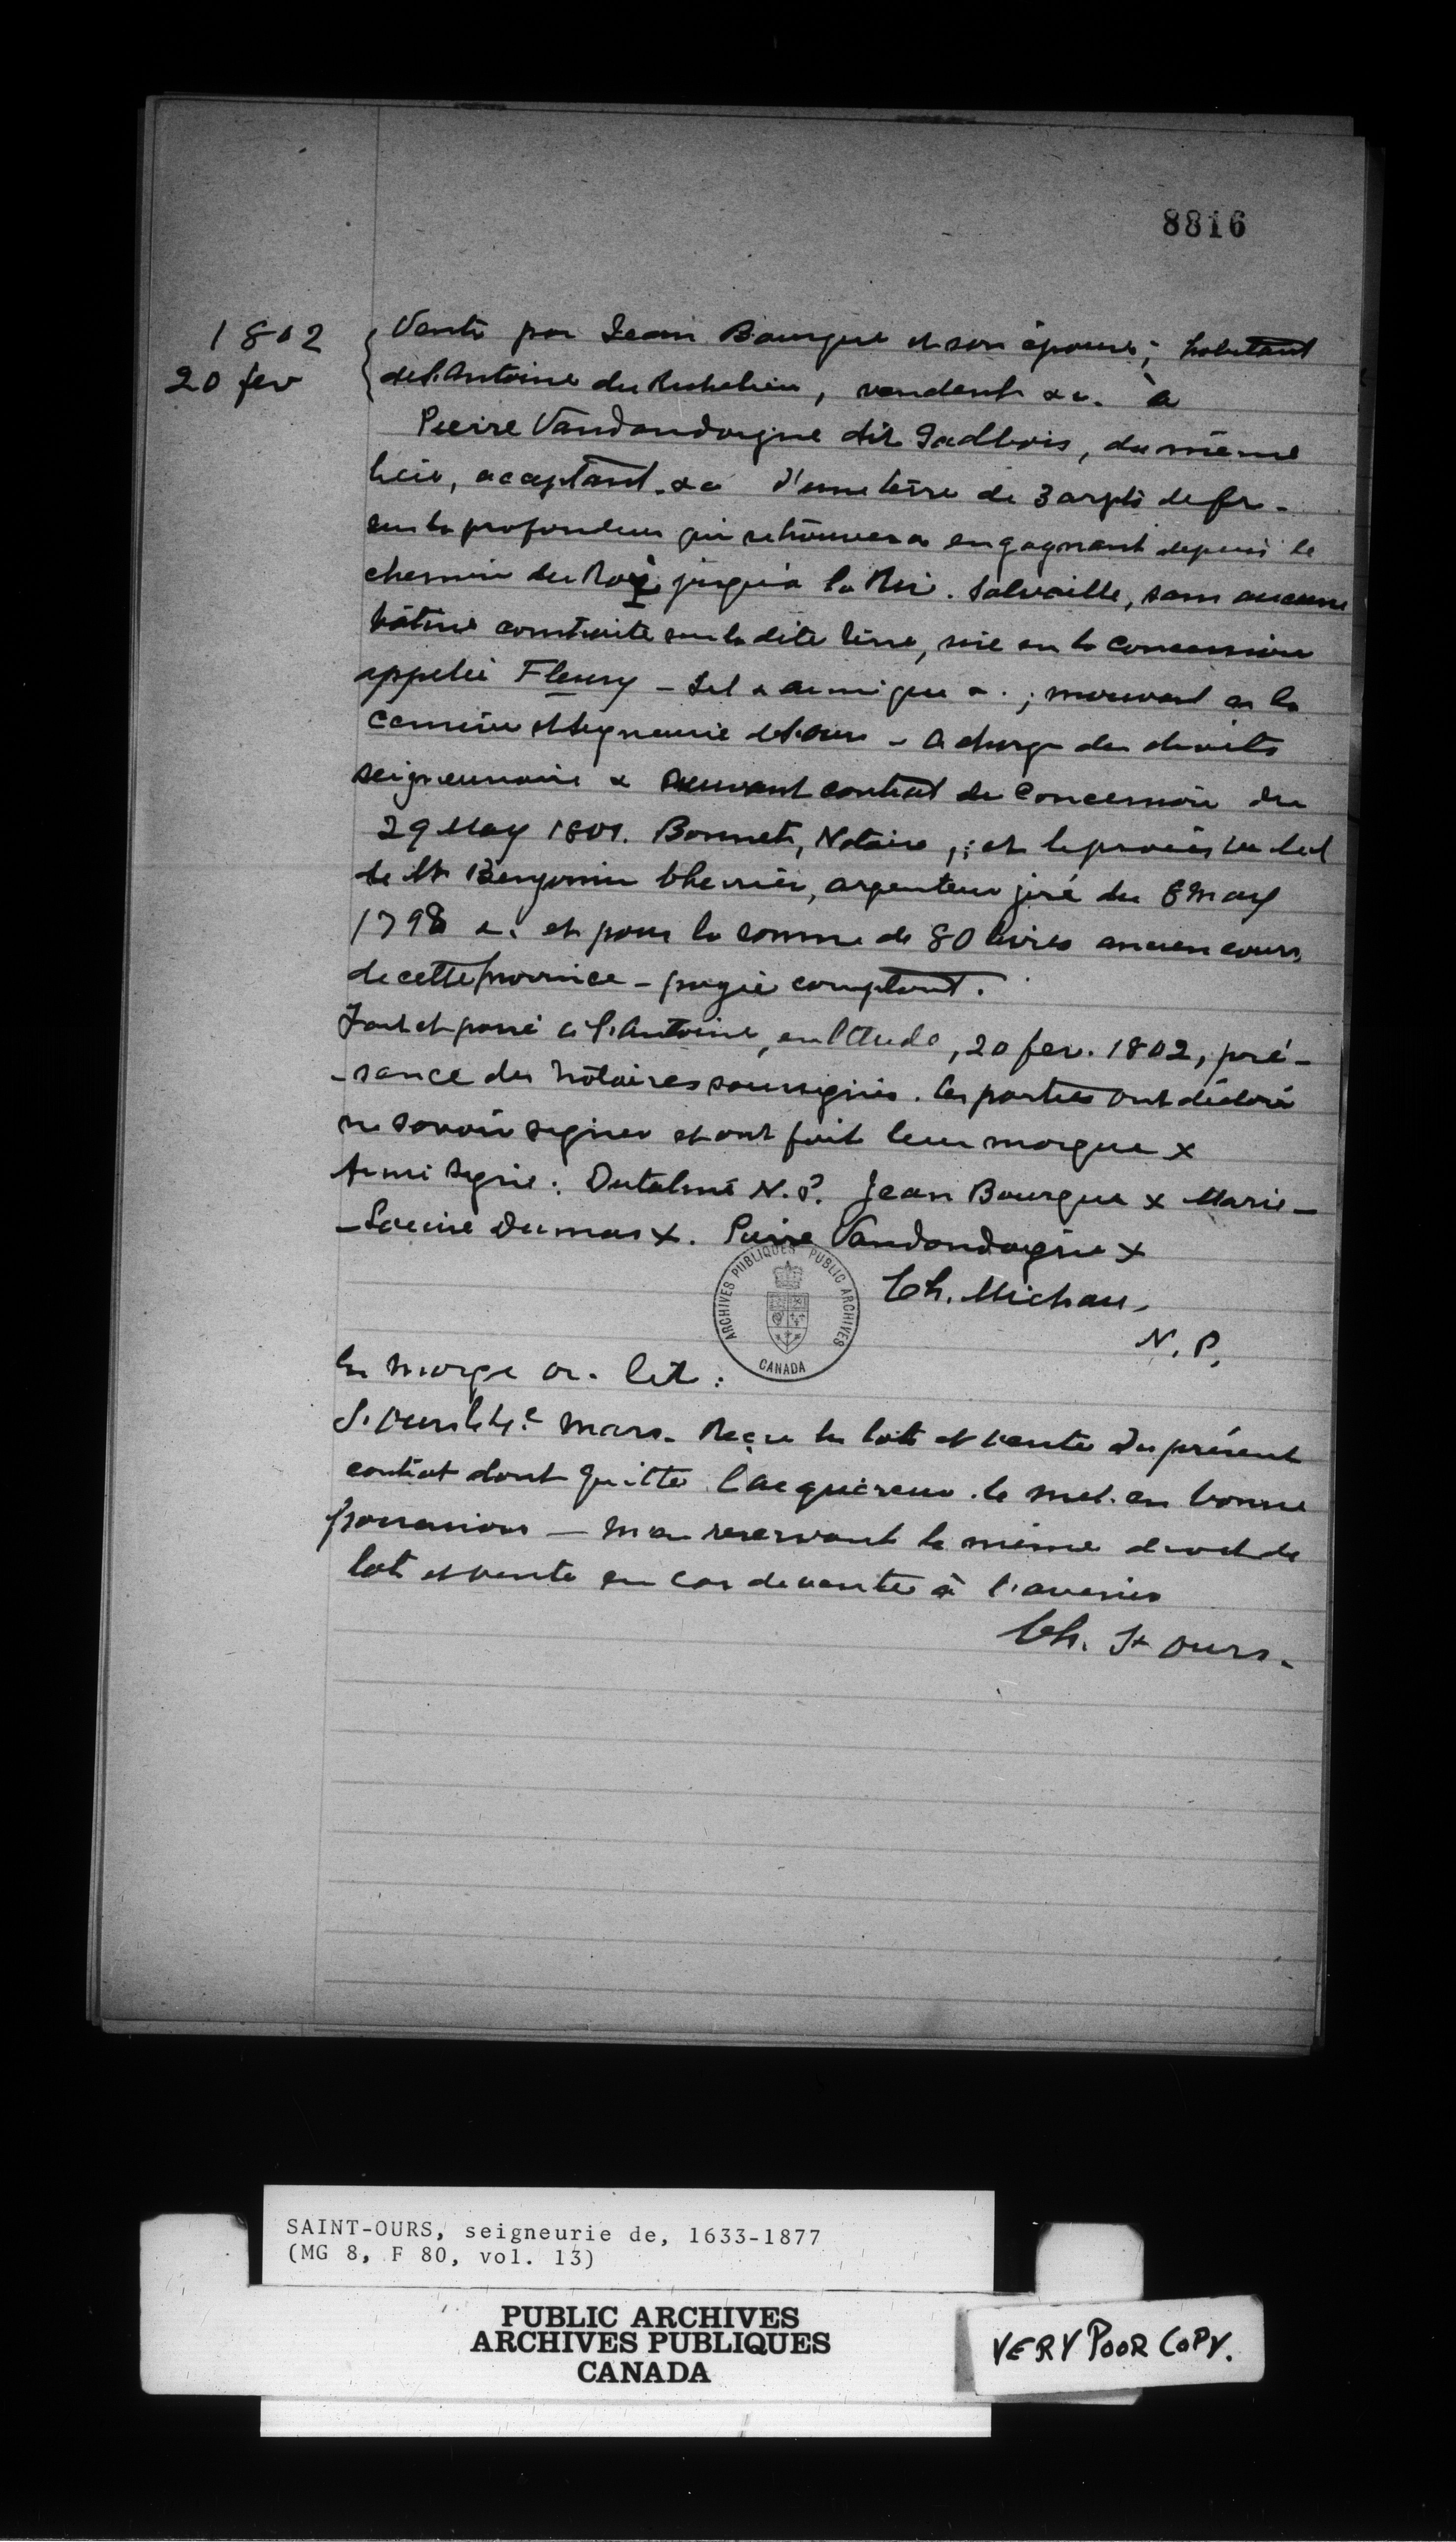 8816
1802
20 fev
Vente par Jean Bourgue et son épouse; habitant
de S. Antoine du Richelieu, vendent &c. à
Pierre Vandandaigne dit Gadbois, du même
lieu, acceptant &c d'une terre de 3 arpts de fr.
sur la profondeur qui se trouvera en gagnant depuis le
chemin du Roy jusqu'à la Riv. Salvaille, sans aucune
bâtisse construite sur la dite terre, sise en la concession
appelée Fleury - Tel & ainsi que &.; mouvant en la
censive et seigneurie de S. Ours - à charge des droits
seigneuriaux & suivant contrat de Concession du
29 May 1801. Bonnet, Notaire,; et le procès verbal
de Mr Benjamin Cherrier, arpenteur juré du 8 May
1798 &. et pour la somme de 80 livres ancien cours
de cette province - payé comptant.
Fait et passé à S. Antoine, en l'Etude, 20 fev. 1802, pré-
-sence des notaires soussignés. Les parties ont déclaré
ne savoir signer et ont fait leur marque x
Ainsi signé: Dutalmé N.P. Jean Bourgue x Marie-
-Louise Dumas x. Pierre Vandandaigne x
Ch. Michau,
N. P.
ARCHIVES PUBLIQUES PUBLIC ARCHIVES
CANADA
En marge
S. Ours le 4e mars. Reçu les lots et vente du présent
contrat dont quitte l'acquéreur. le met en bonne
possession - me reservant le même droit de
lots et vente en cas de vente à l'avenir
Ch. St Ours.
SAINT-OURS, seigneurie de, 1633-1877
(MG 8, F 80, vol. 13)
PUBLIC ARCHIVES
ARCHIVES PUBLIQUES
CANADA
VERY POOR COPY.